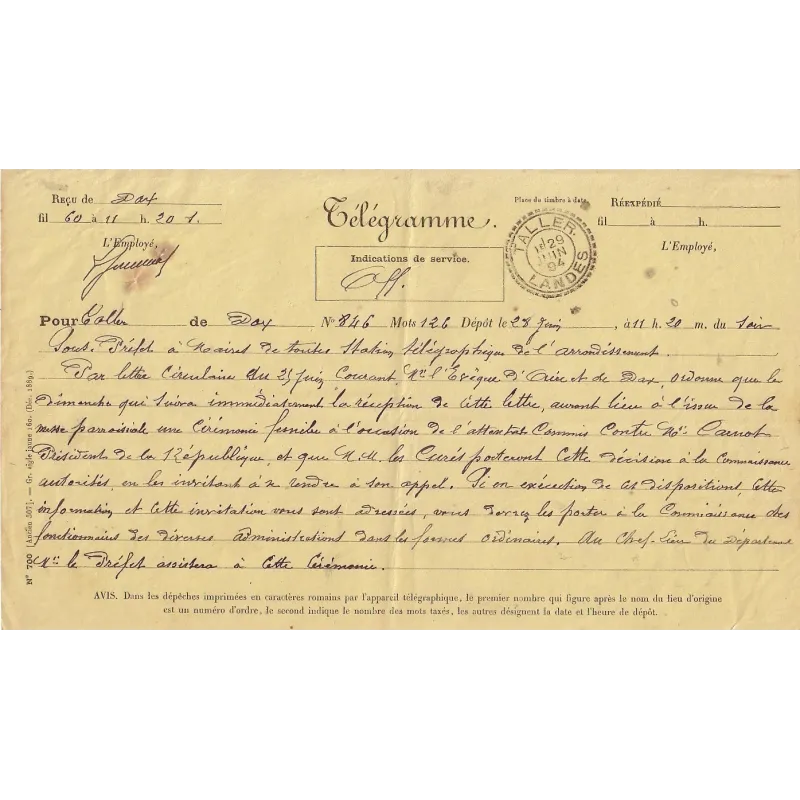 Reçu de Dax
fil 60 à 11 h. 20 s.
L'Employé,
Télégramme.
Indications de service.
Off.
Place du timbre à date.
TALLER.
29
JUIN
94
LANDES
Réexpédié
fil à h.
L'Employé,
Pour Taller de Dax No 846 Mots 126 Dépôt le 28 Juin, à 11 h. 20 m. du soir
Sous-Préfet à Maires de toutes Station télégraphique de l'arrondissement.
Par lettre Circulaire du 25 Juin Courant, Mr l'Evêque d'Aire et de Dax, ordonne que le
dimanche qui suivra immédiatement la réception de cette lettre, auront lieu à l'issue de la
messe parroissiale une Cérémonie funèbre à l'occasion de l'attentat Commis Contre Mr. Carnot
Président de la République, et que M.M. les Curés porteront cette décision à la Connaissance
autorités, en les invitant à se rendre à son appel. Si en exécution de ces dispositions, cette
information et cette invitation vous sont adressées, vous devrez les porter à la Connaissance des
fonctionnaires des diverses administrations dans les formes ordinaires. Au Chef-Lieu du Département
Mr le Préfet assistera à cette Cérémonie.
AVIS. Dans les dépêches imprimées en caractères romains par l'appareil télégraphique, le premier nombre qui figure après le nom du lieu d'origine
est un numéro d'ordre, le second indique le nombre des mots taxés, les autres désignent la date et l'heure de dépôt.
No 700 [Ancien 507]. — Gr. aigle jaune 160. (Déc. 1889.)